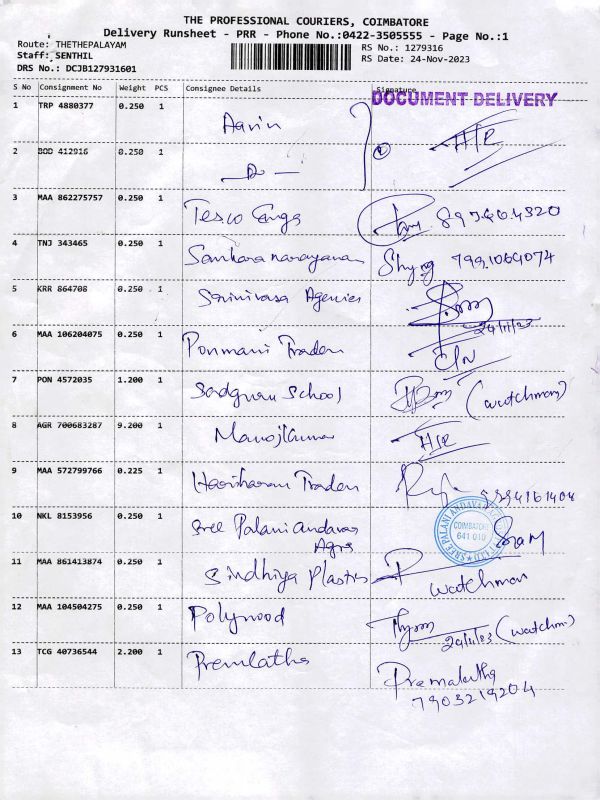 THE PROFESSIONAL COURIERS, COIMBATORE
Delivery Runsheet - PRR - Phone No.:0422-3505555 - Page No.:1
Route: THETHEPALAYAM
Staff: SENTHIL
DRS No.: DCJB127931601
RS No.: 1279316
RS Date: 24-Nov-2023
S No Consignment No Weight PCS Consignee Details Signature
DOCUMENT DELIVERY
1 TRP 4880377 0.250 1 Aavin
2 BOD 412916 0.250 1
3 MAA 862275757 0.250 1 Tesco Enggs
4 TNJ 343465 0.250 1 Sankara narayanan 7991064074
5 KRR 864708 0.250 1 Srinivasa Agencies
24/11/23
6 MAA 106204075 0.250 1 Ponmani Traders
7 PON 4572035 1.200 1 Sadguru School (watchman)
8 AGR 700683287 9.200 1 Manojkumar
9 MAA 572799766 0.225 1 Hariharan Traders
10 NKL 8153956 0.250 1 Sree Palani Andavar
Agros
COIMBATORE
641 010
11 MAA 861413874 0.250 1 Sindhiya Plastics watchman
12 MAA 104504275 0.250 1 Polywood (watchm.)
13 TCG 40736544 2.200 1 Premlatha Premalatha
7903219204